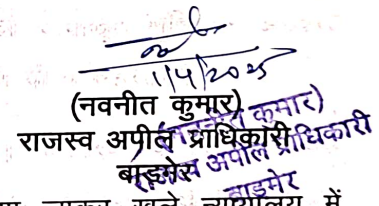 1/4/2025
(नवनीत कुमार)
राजस्व अपील प्राधिकारी
बाड़मेर
(नवनीत कुमार)
राजस्व अपील प्राधिकारी
बाड़मेर
खुले न्यायालय में